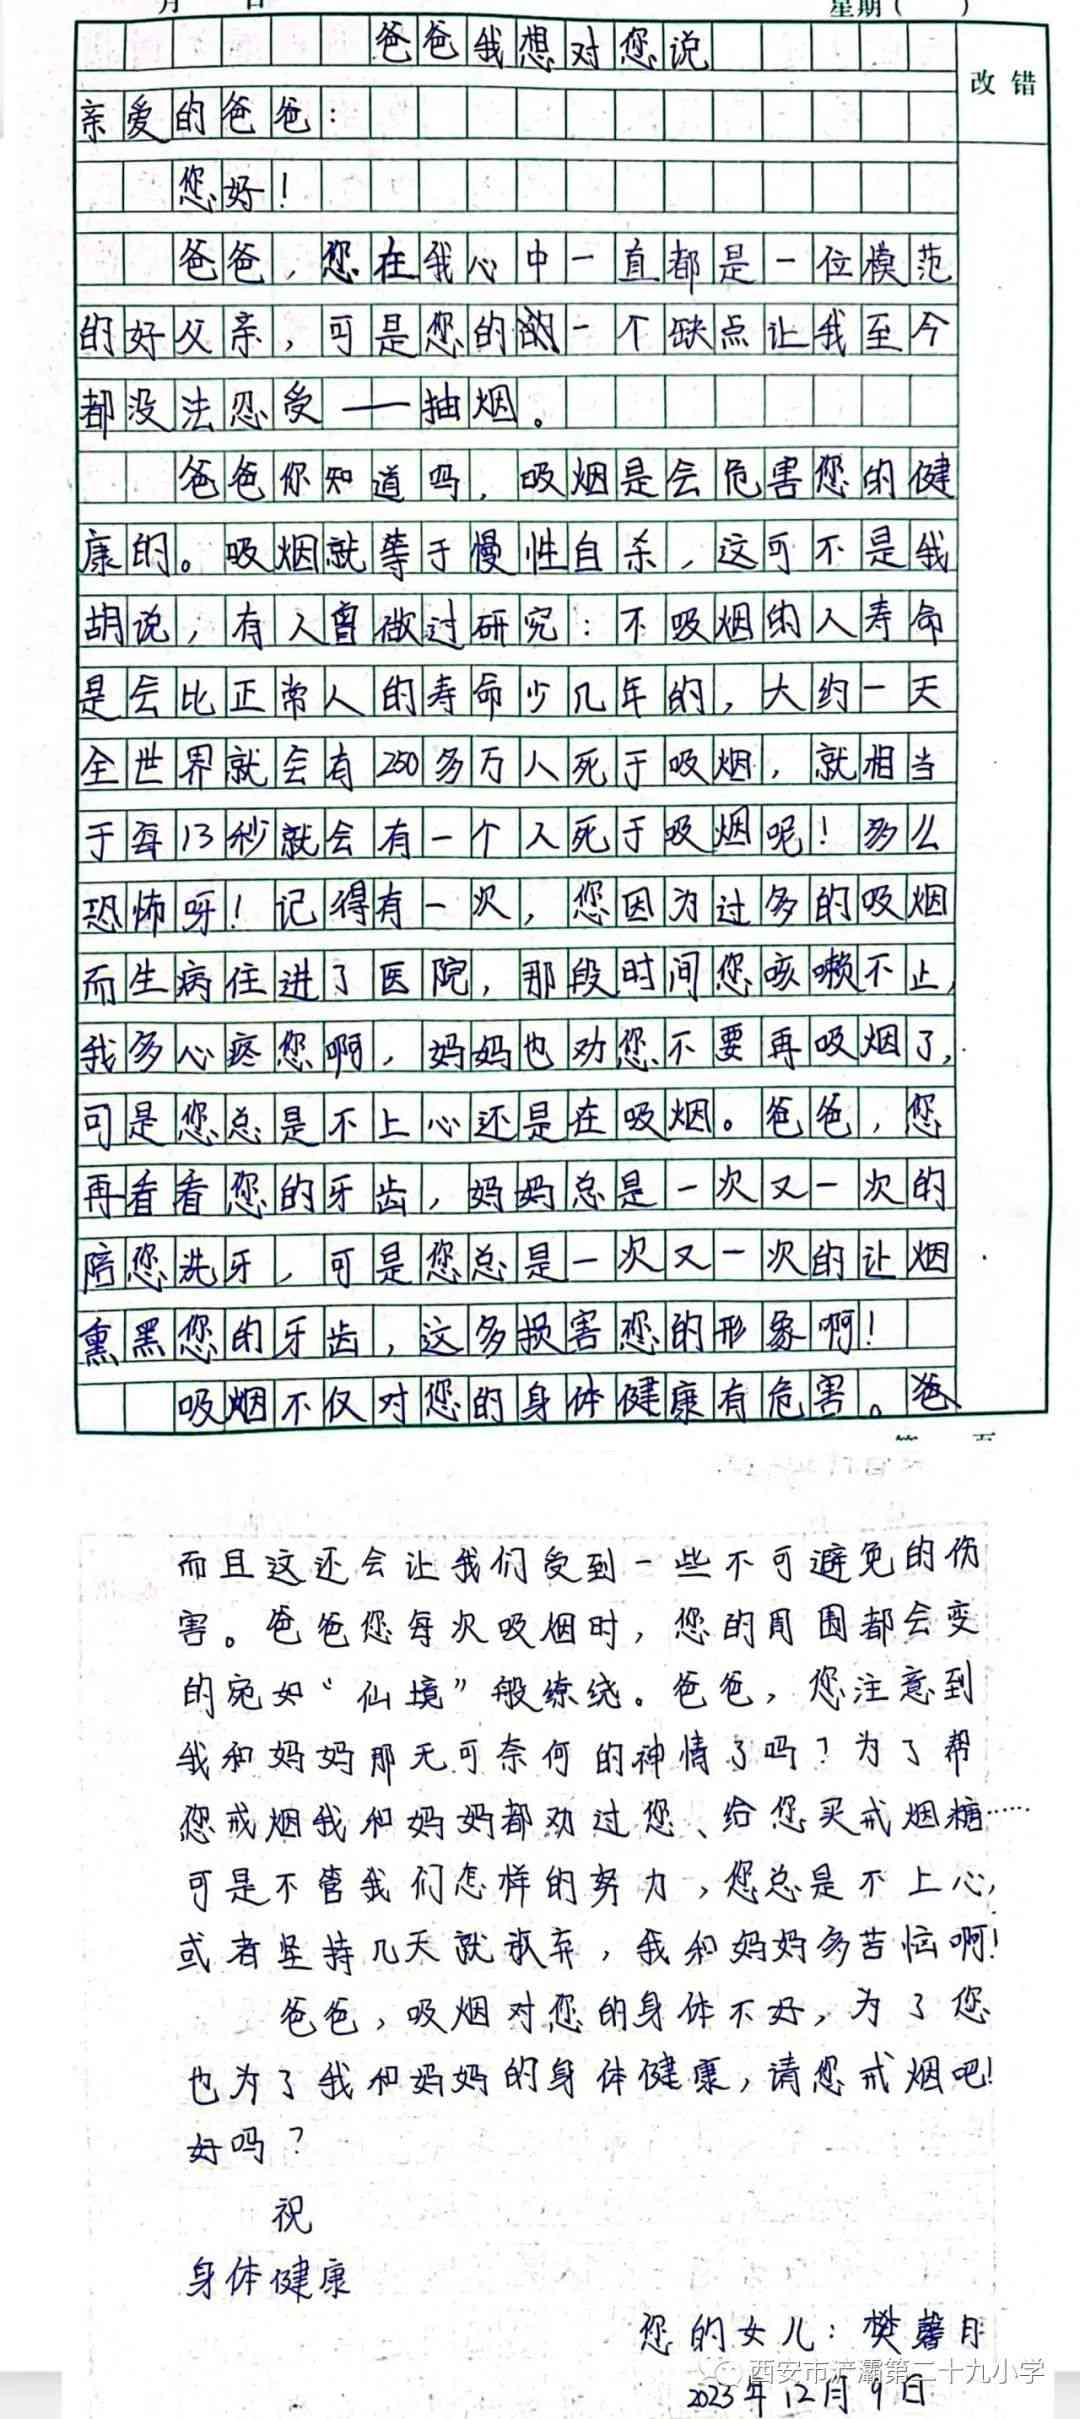 月 日 星期( )
爸爸我想对您说
改错
亲爱的爸爸：
您好！
爸爸，您在我心中一直都是一位模范
的好父亲，可是您的一个缺点让我至今
都没法忍受——抽烟。
爸爸你知道吗，吸烟是会危害您的健
康的。吸烟就等于慢性自杀，这可不是我
胡说，有人曾做过研究：不吸烟的人寿命
是会比正常人的寿命少几年的，大约一天
全世界就会有250多万人死于吸烟，就相当
于每13秒就会有一个人死于吸烟呢！多么
恐怖呀！记得有一次，您因为过多的吸烟
而生病住进了医院，那段时间您咳嗽不止，
我多心疼您啊，妈妈也劝您不要再吸烟了，
可是您总是不上心还是在吸烟。爸爸，您
再看看您的牙齿，妈妈总是一次又一次的
陪您洗牙，可是您总是一次又一次的让烟
熏黑您的牙齿，这多损害您的形象啊！
吸烟不仅对您的身体健康有危害。爸
而且这还会让我们受到一些不可避免的伤
害。爸爸您每次吸烟时，您的周围都会变
的宛如“仙境”般缭绕。爸爸，您注意到
我和妈妈那无可奈何的神情了吗？为了帮
您戒烟我和妈妈都劝过您、给您买戒烟糖……
可是不管我们怎样的努力，您总是不上心，
或者坚持几天就放弃，我和妈妈多苦恼啊！
爸爸，吸烟对您的身体不好，为了您
也为了我和妈妈的身体健康，请您戒烟吧！
好吗？
祝
身体健康
您的女儿：樊馨月
西安市浐灞第二十九小学
2023年12月9日